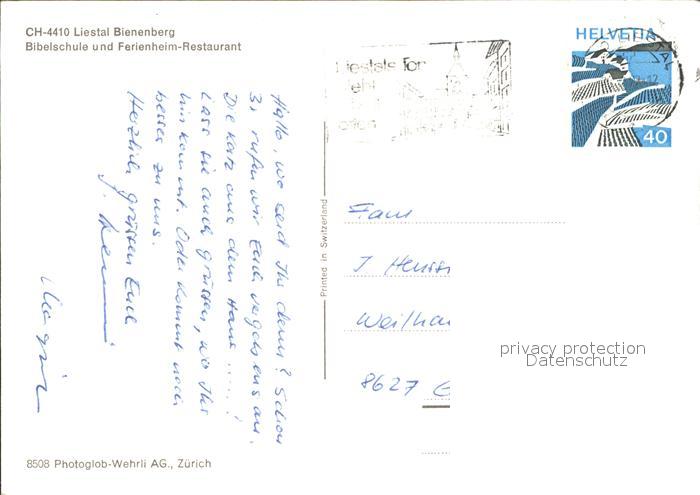 CH-4410 Liestal Bienenberg
Bibelschule und Ferienheim-Restaurant
HELVETIA
40
Liestals Tor
Hallo, wo seid Ihr denn? Schon
3x rufen wir Euch vergebens an.
Die Katz aus dem Haus .....!
Lass sie auch grüssen, wo Ihr
hinkommt. Oder kommt noch
besser zu uns.
Herzlich grüssen Euch
Printed in Switzerland
Fam
J Heussi
Weilhau
8627 G
privacy protection
Datenschutz
8508 Photoglob-Wehrli AG., Zürich